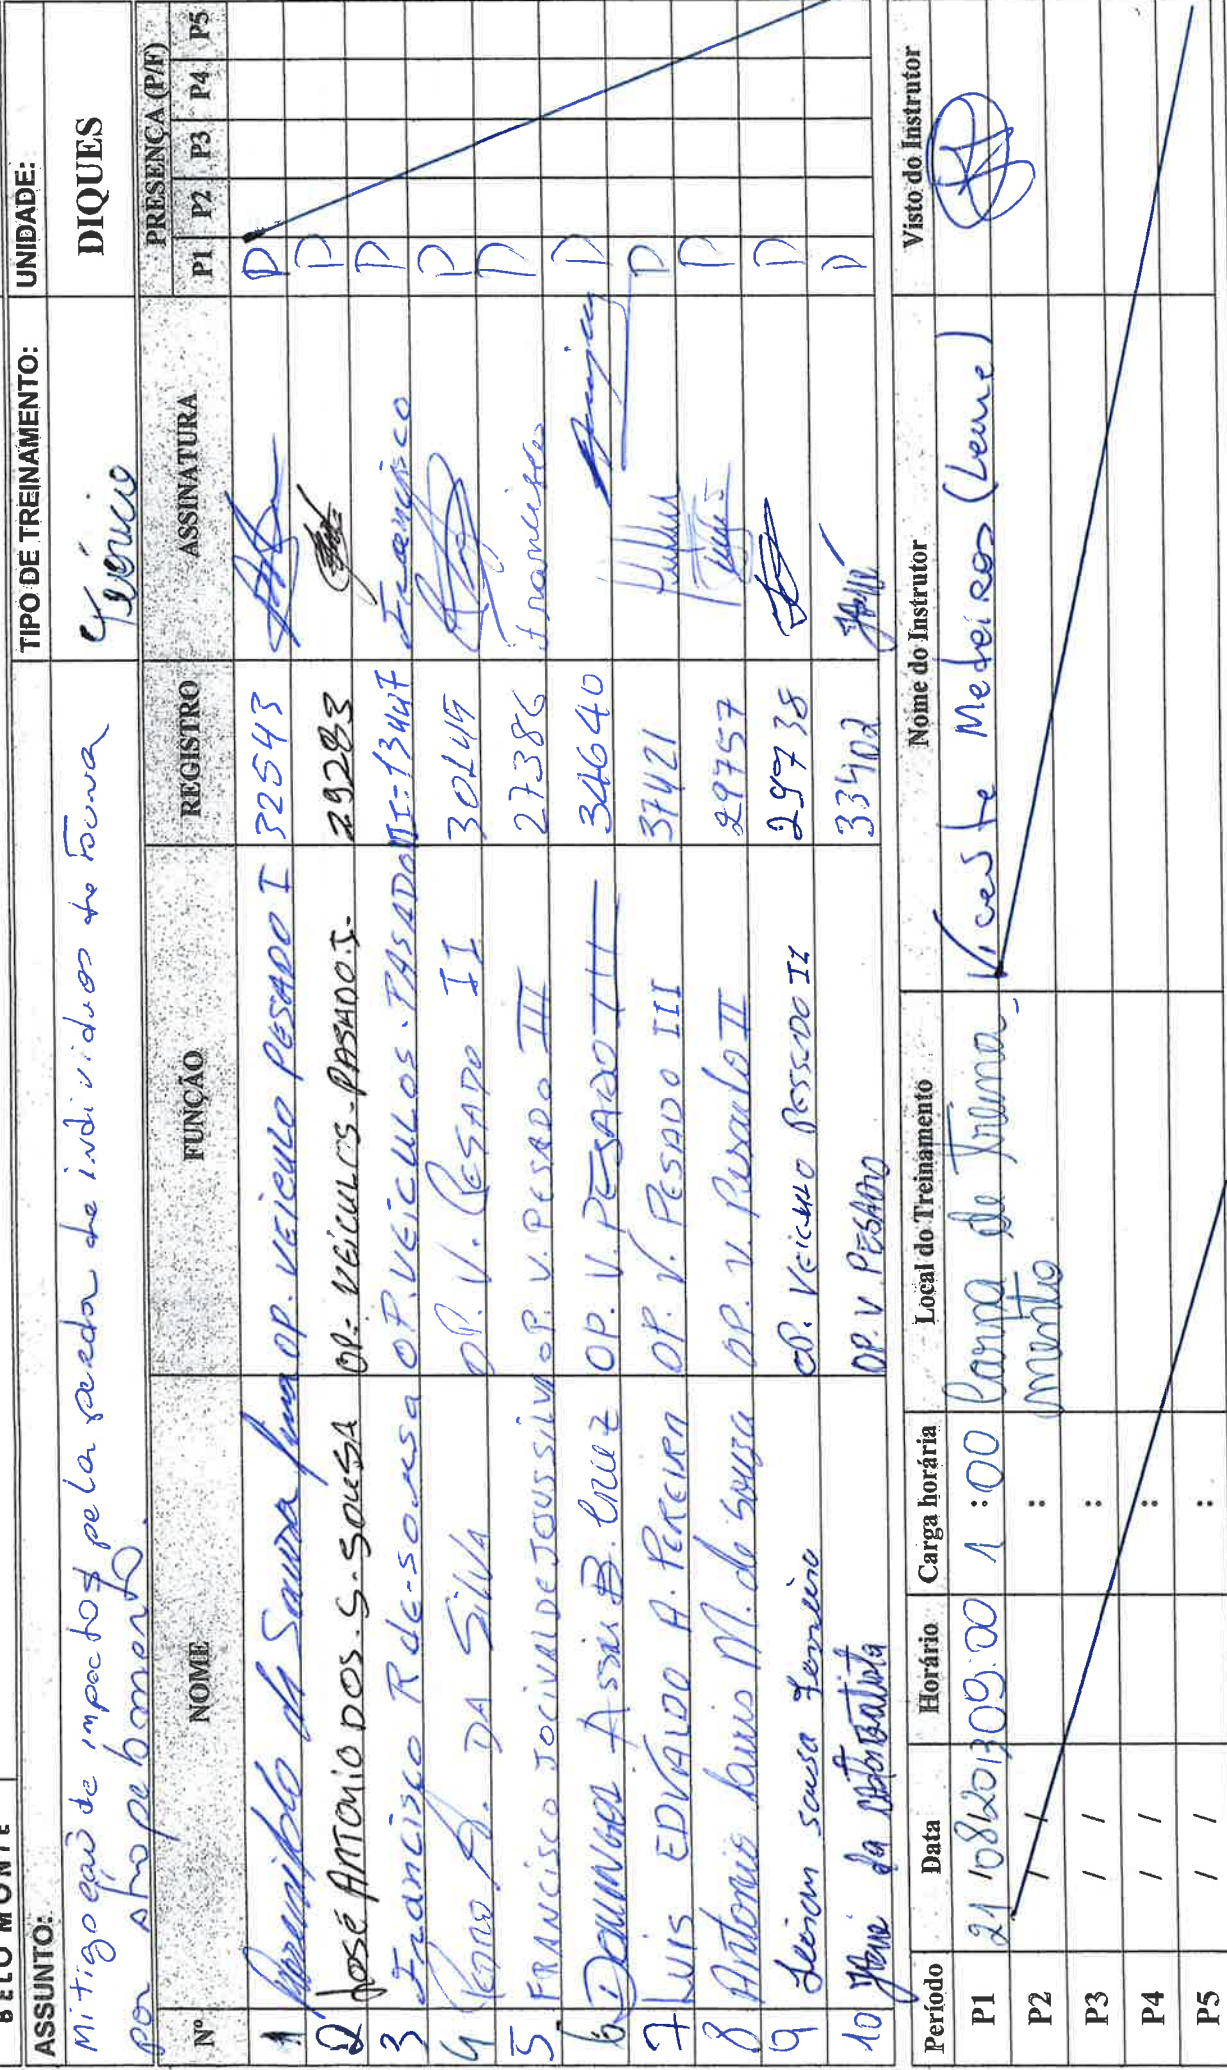 BELO MONTE
ASSUNTO:
TIPO DE TREINAMENTO:
UNIDADE:
Mitigação de impactos pela perda de indivíduos de Fauna
por atropelamento
Técnico
DIQUES
Nº NOME FUNÇÃO REGISTRO ASSINATURA PRESENÇA (P/F)
P1 P2 P3 P4 P5
1 da Souza OP. VEICULO PESADO I 32543 P
2 JOSÉ ANTONIO DOS. S. SOUSA OP: VEÍCULOS-PASADO I- 29283 P
3 Francisco R de-sousa OP. VEÍCULOS. PASADO III-13447 Francisco P
4 DA SILVA OP. V. PESADO II P
5 FRANCISCO JOCIVAL DE JOUS SILVA OP. V. PESADO III 27386 Francisco P
6 DOMINGOS Assis B. Cruz OP. V. PESADO III 34640 P
7 LUIS EDVALDO A. PEREIRA OP. V. PESADO III 37421 P
8 Antonio Luis M. de Souza OP. V. Pesado II 29757 P
9 sousa OP. VEICULO PESSADO II 29738 P
10 OP. V PESADO 33402 P
Período Data Horário Carga horária Local do Treinamento Nome do Instrutor Visto do Instrutor
P1 21/08/2013 09:00 1:00 Carpa de Treina- Vicente Medeiros (Leme)
mento
P2 / / :
P3 / / :
P4 / / :
P5 / / :